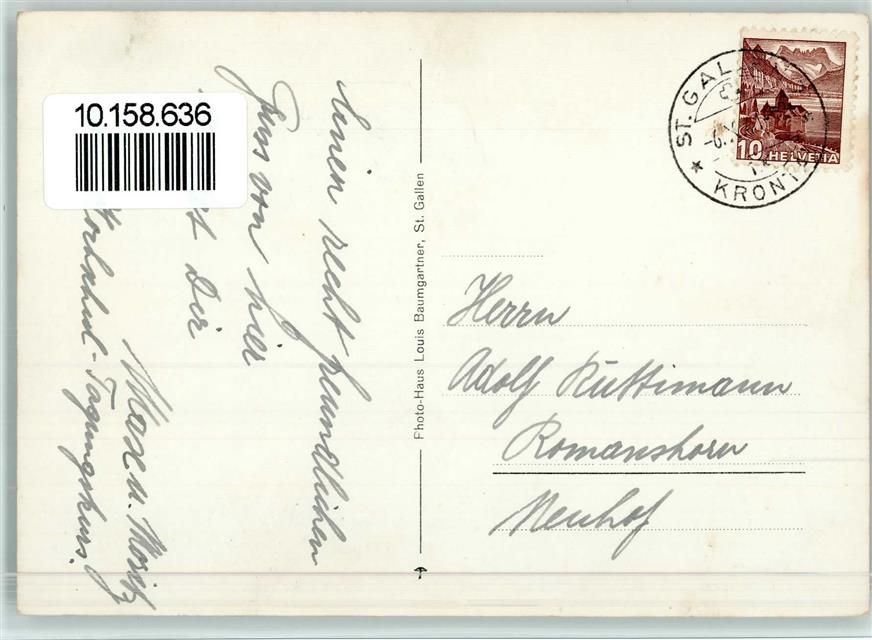 10.158.636
Einen recht freundlichen
Gruss von hier
Dir
Max u. Moritz
Tagungskurs.
Photo-Haus Louis Baumgartner, St. Gallen
ST. GAL
KRONT
10 HELVETIA
Herrn
Adolf Ruttimann
Romanshorn
Neuhof